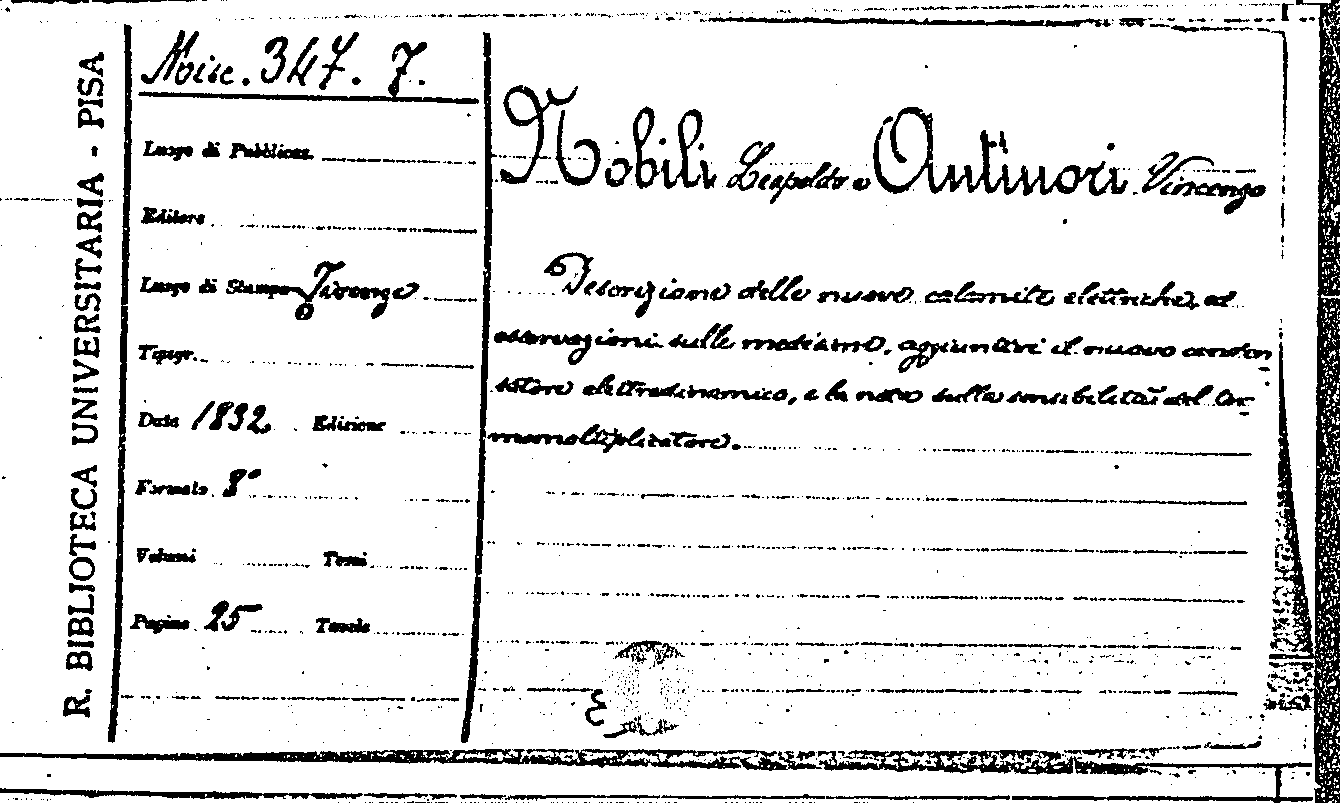 R. BIBLIOTECA UNIVERSITARIA - PISA
Misc. 347. 7.
Luogo di Pubblicaz.
Editore
Luogo di Stampa Firenze
Tipogr.
Data 1832. Edizione
Formato 8°
Volumi Tomi
Pagine 25 Tavole
Nobili Leopoldo e Antinori Vincenzo
Descrizione delle nuove calamite elettriche, ed
osservazioni sulle medesime, aggiuntovi il nuovo conden
satore elettrodinamico, e la nota sulla sensibilità del ter-
momoltiplicatore.